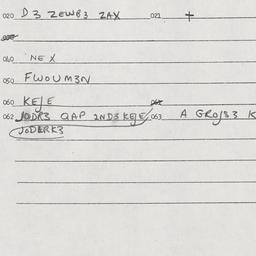 020 D3 ZEWB3 ZAX 021 +
040 NEX
050 FWOUM3N
060 KEJE
062 JODR3 QAP 2ND3 KEJE 063 A GROJB3 K
JODERK3